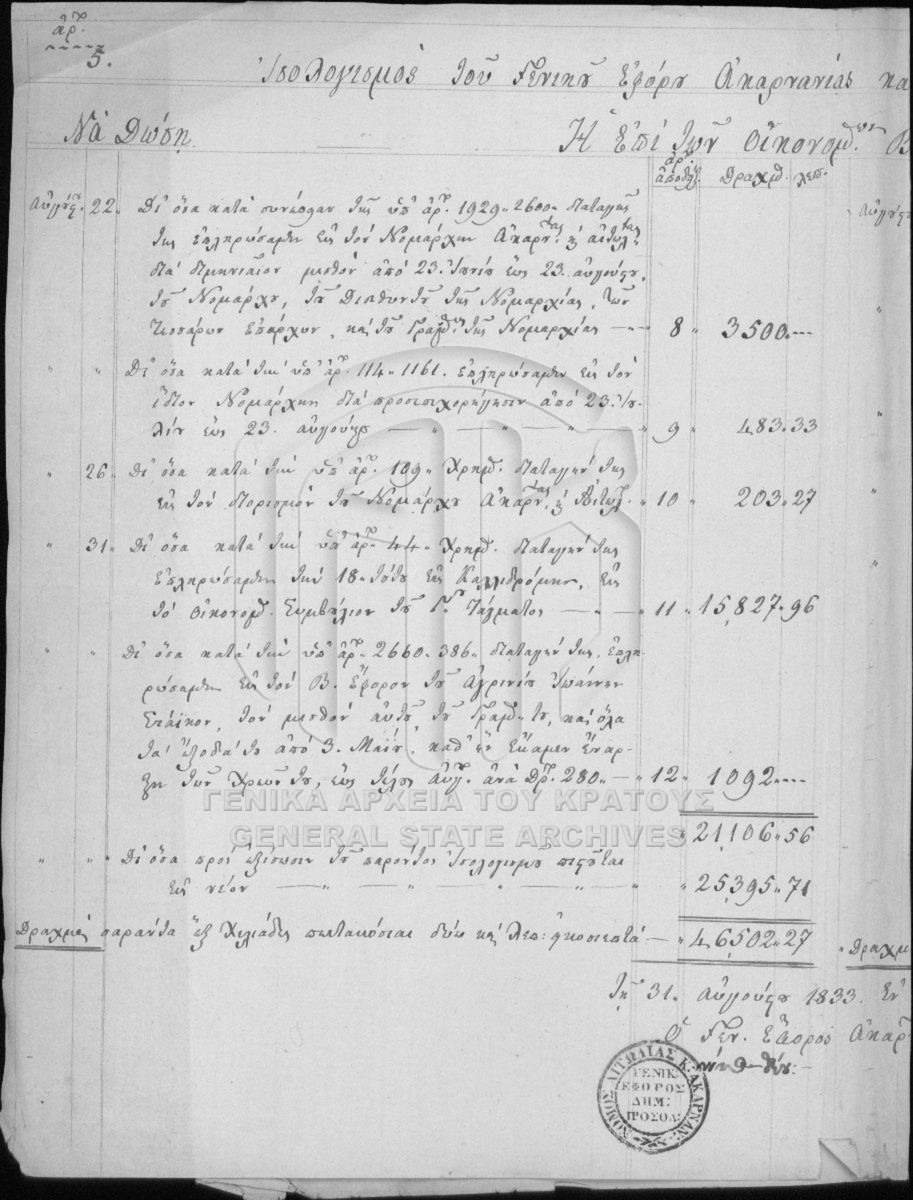 ἀρ.
5.
Ἰσολογισμὸς τοῦ Γενικοῦ Ἐφόρου Ἀκαρνανίας κα
Νὰ Δώσῃ
Ἡ Ἐπὶ τῶν Οἰκονομ.
ἀρ. ἀποδείξ. Δραχμ. λεπ.
Αὐγούς. 22. Δι' ὅσα κατὰ συνέπειαν τῆς ὑπ' ἀρ. 1929 " 2600 " διαταγῆς
της ἐπληρώσαμεν εἰς τὸν Νομάρχην Ἀκαρν. κ Αἰτωλ.
διὰ διμηνιαῖον μισθὸν ἀπὸ 23. Ἰουνίου ἕως 23. αὐγούςου,
τοῦ Νομάρχου, τοῦ Διευθυντοῦ τῆς Νομαρχίας, τῶν
τεσσάρων Ἐπάρχων, καὶ τοῦ Γραμ. τῆς Νομαρχίας — " 8 " 3500 "---
" " Δι' ὅσα κατὰ τὴν ὑπ' ἀρ. 114 " 1161. ἐπληρώσαμεν εἰς τὸν
ἴδιον Νομάρχην διὰ ἀπὸ 23. Ἰου-
λίου ἕως 23. αὐγούςου — " — " — " — " 9 " 483 " 33
" 26. Δι' ὅσα κατὰ τὴν ὑπ' ἀρ. 109 " Χρημ. διαταγήν της
εἰς τὸν διορισμὸν τοῦ Νομάρχου Ἀκαρν. κ Αἰτωλ. " 10 " 203 " 27
" 31 " Δι' ὅσα κατὰ τὴν ὑπ' ἀρ. 44 " Χρημ. διαταγήν της
ἐπληρώσαμεν τὴν 18 " τούτου εἰς Καλλιδρόμην, εἰς
τὸ Οἰκονομ. Συμβούλιον τοῦ Γ. Τάγματος — " — 11 " 15,827 " 96
" " Δι' ὅσα κατὰ τὴν ὑπ' ἀρ. 2660 " 386 " διαταγήν της, ἐπλη-
ρώσαμεν εἰς τὸν Β. Ἔφορον τοῦ Ἀγρινίου Ἰωάννην
Στάϊκον, τὸν μισθὸν αὐτοῦ, τοῦ Γραμ. του, καὶ ὅλα
τὰ ἔξοδά του ἀπὸ 3. Μαΐου, καθ' ἣν ἔκαμεν ἔναρ-
ξιν τῶν Χρεῶν του, ἕως τέλους Αὐγ. ἀνὰ Δρ. 280 " — " 12 " 1092 "----
" 21,106 " 56
" " " Δι' ὅσα πρὸς ἐξίσωσιν τοῦ παρόντος Ἰσολογισμοῦ
εἰς νέον — " — " — " — " " 25,395 " 71
Δραχμὲς σαράντα ἓξ Χιλιάδες πεντακόσιαι δύω καὶ λεπ: εἰκοσιεπτά — " 46,502 " 27
Τῇ 31. αὐγούςου 1833. Ἐν
Ὁ Γεν. Ἔφορος Ἀκαρ
ΝΟΜΟΣ ΑΙΤΩΛΙΑΣ Κ. ΑΚΑΡΝΑΝ:
ΓΕΝΙΚ:
ΕΦΟΡΟΣ
ΔΗΜ:
ΠΡΟΣΟΔ:
ΓΕΝΙΚΑ ΑΡΧΕΙΑ ΤΟΥ ΚΡΑΤΟΥΣ
GENERAL STATE ARCHIVES